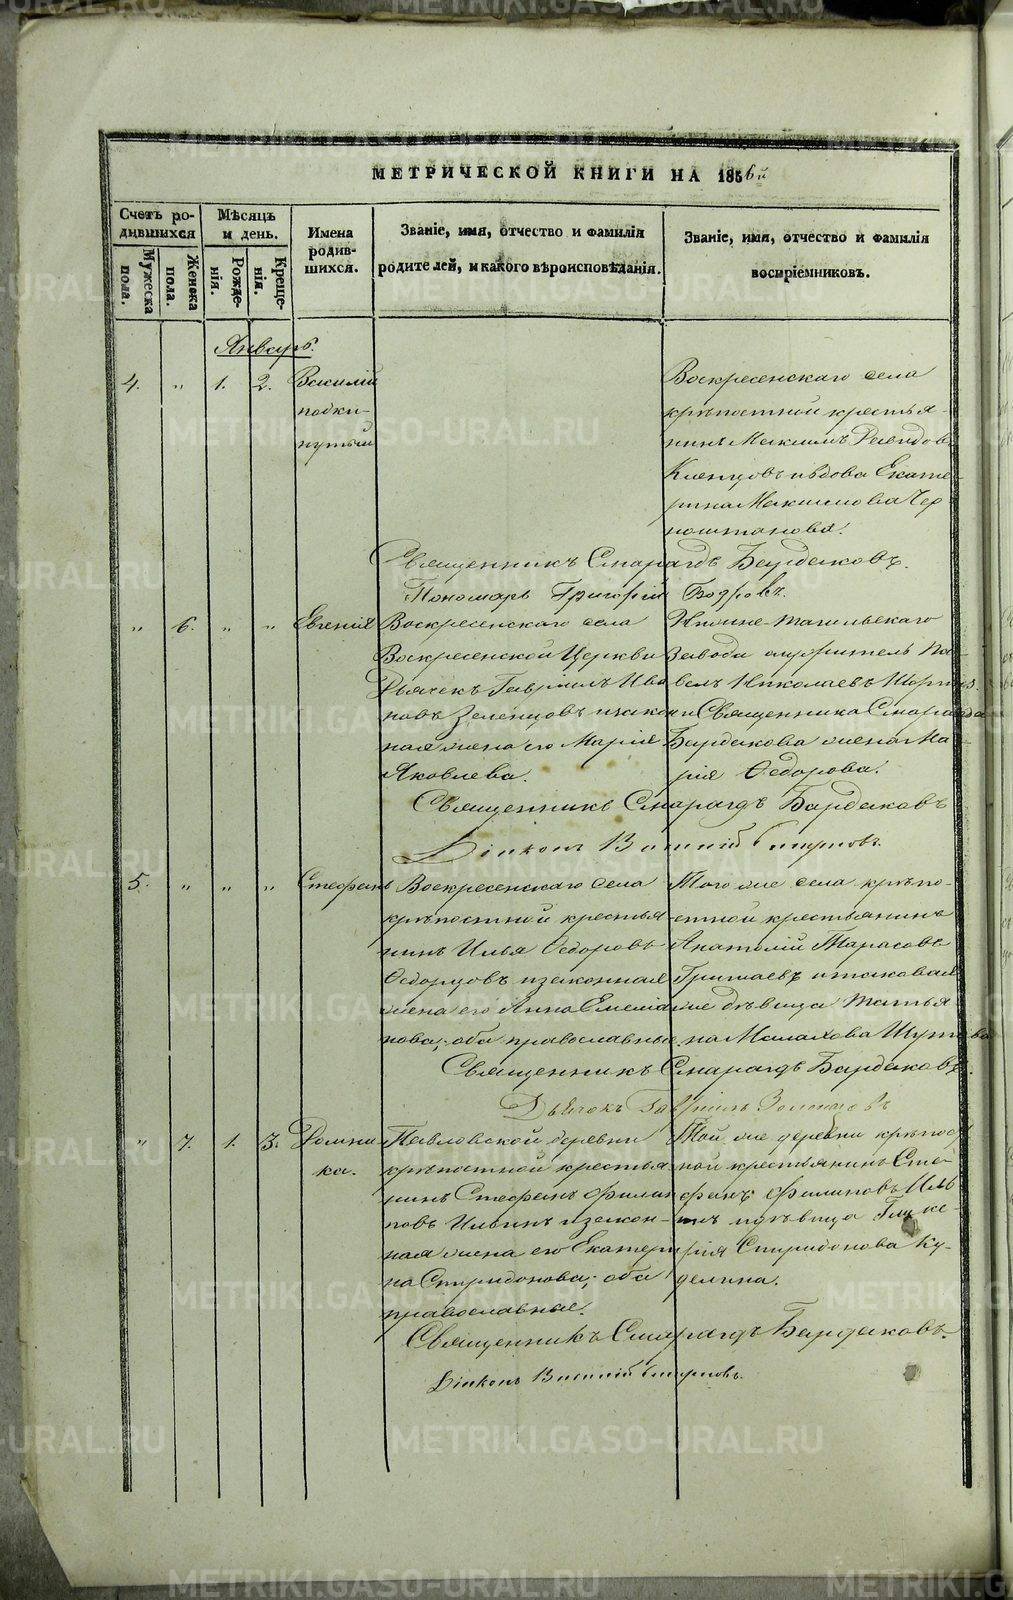 МЕТРИЧЕСКОЙ КНИГИ НА 1856й
Счетъ родившихся
Мужеска пола.
Женска пола.
Мѣсяцъ и день.
Рожденія.
Крещенія.
Имена родившихся.
Званіе, имя, отчество и фамилія
родителей, и какого вѣроисповѣданія.
Званіе, имя, отчество и фамилія
воспріемниковъ.
Январь.
4. " 1. 2. Василій
подки-
нутый
Воскресенскаго села
крѣпостной крестья-
нинъ Максимъ
вдова Екате-
рина Максимова Чер
ноштанова.
Священникъ Смарагдъ Бардаковъ.
Пономарь Григорій Бодровъ.
" 6. " " Евгенія
Воскресенскаго села
Воскресенской Церкви
Дьячекъ Гавріилъ Ива
новъ Зеленцовъ и закон
ная жена его Марія
Яковлева.
Нижне-Тагильскаго
Завода служитель Па-
велъ Николаевъ
и Священника Смарагда
Бардакова жена Ма-
рія Ѳедорова.
Священникъ Смарагдъ Бардаковъ
Діаконъ Смирновъ.
5. " " " Стефанъ
Воскресенскаго села
крѣпостной крестья-
нинъ Илья Ѳедоровъ
Ѳедорцовъ и законная
жена его Анна Емелья
нова; оба православные.
Того же села крѣпо-
стной крестьянинъ
Анатолій Тарасовъ
и таковая
же дѣвица Татья-
на Малахова
Священникъ Смарагдъ Бардаковъ.
Дьячекъ Гавріилъ Зеленцовъ
" 7. 1. 3. Домни-
ка.
Павловской деревни
крѣпостной крестья-
нинъ Стефанъ Филип
повъ Ильинъ и закон-
ная жена его Екатери
на Спиридонова; оба
православные.
Той же деревни крѣпост
ной крестьянинъ Сте-
фанъ Филиповъ Иль
инъ и дѣвица Глике-
рія Спиридонова Ку-
делина.
Священникъ Смарагдъ Бардаковъ.
Діаконъ Смирновъ.
METRIKI.GASO-URAL.RU